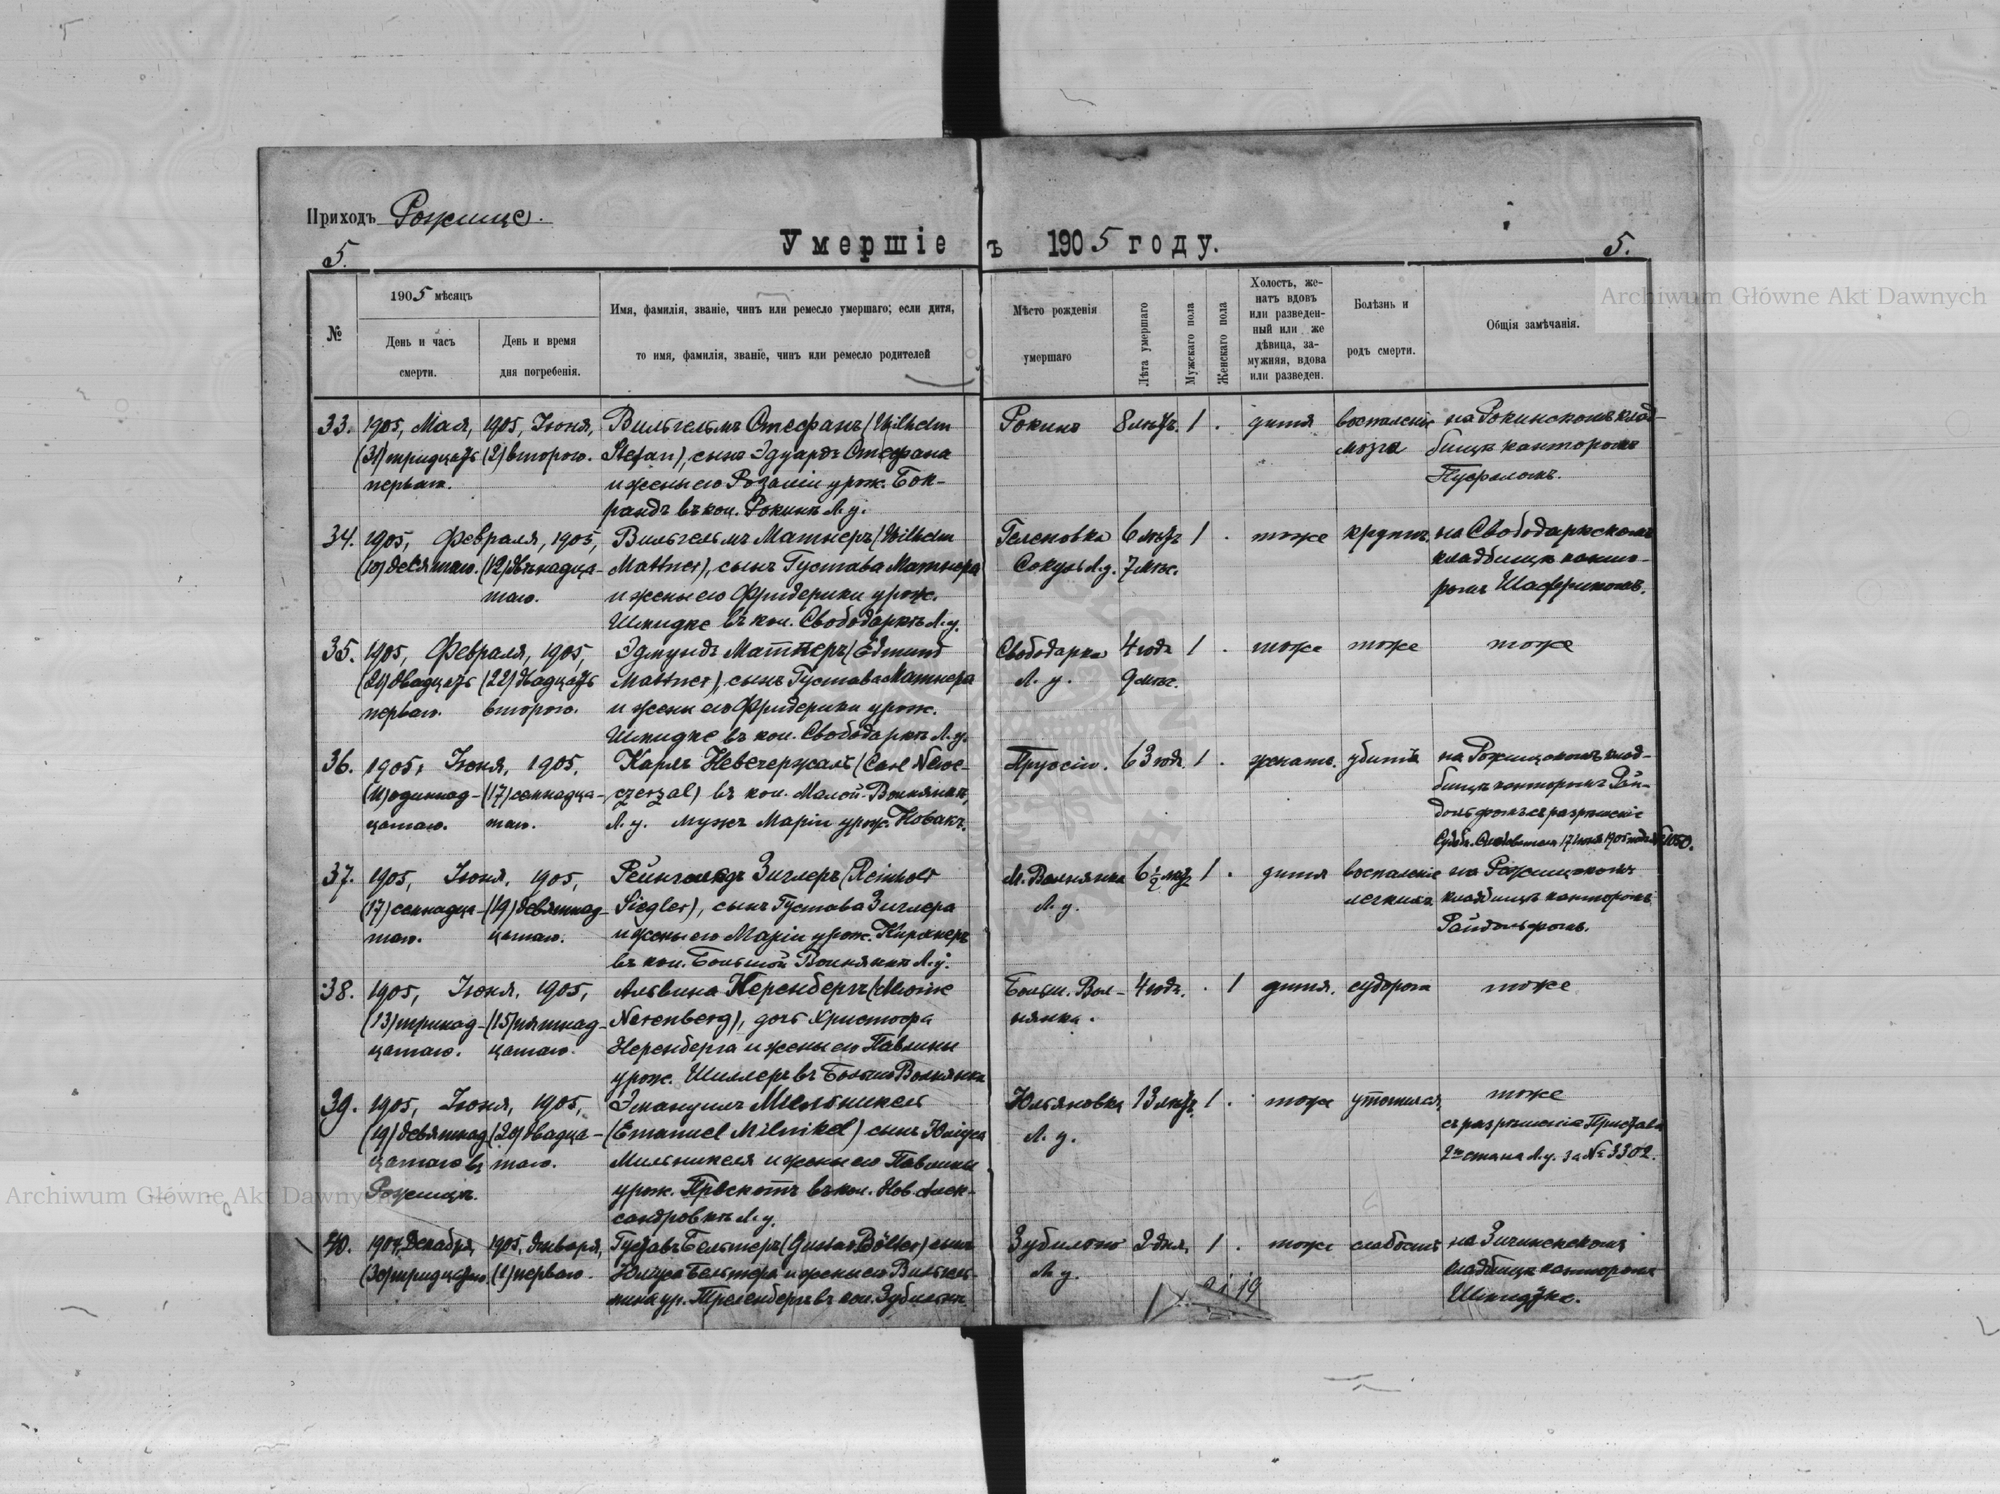 Приходъ Рожище.
Умершіе ъ 1905 году.
5.
5.
№
1905 мѣсяцъ
День и часъ
смерти.
День и время
дня погребенія.
Имя, фамилія, званіе, чинъ или ремесло умершаго; если дитя,
то имя, фамилія, званіе, чинъ или ремесло родителей
Мѣсто рожденія
умершаго
Лѣта умершаго
Мужскаго пола
Женскаго пола
Холостъ, же-
натъ вдовъ
или разведен-
ный или же
дѣвица, за-
мужняя, вдова
или разведен.
Болѣзнь и
родъ смерти.
Общія замѣчанія.
Archiwum Główne Akt Dawnych
33.
1905, Мая,
(31) тридцать
перваго.
1905, Іюня,
(2) второго.
Вильгельмъ Стефанъ (Wilhelm
Stefan), сынъ Эдуарда Стефана
и жены его Розаліи урож. Бок-
рандъ въ кол. Рокинѣ Л. у.
Рокинѣ
8 лѣтъ.
1
.
дитя
воспаленіе
мозга
на Рокинскомъ клад-
бищѣ канторомъ
34.
1905, Февраля,
(10) десятаго.
1905,
(12) двѣнадца-
таго.
Вильгельмъ Матнеръ (Wilhelm
Mattner), сынъ Густава Матнера
и жены его Фридерики урож.
Шмидке въ кол. Свободаркѣ Л. у.
Геленовка
Сокуль Л. у.
6 лѣтъ
7 мѣс.
1
.
тоже
крупъ.
на Свободарскомъ
кладбищѣ канто-
ромъ Шафрикомъ.
35.
1905, Февраля,
(21) двадцать
перваго.
1905,
(22) двадцать
второго.
Эдмундъ Матнеръ (Edmund
Mattner), сынъ Густава Матнера
и жены его Фридерики урож.
Шмидке въ кол. Свободаркѣ Л. у.
Свободарка
Л. у.
4 года
9 мѣс.
1
.
тоже
тоже
тоже
36.
1905, Іюня,
(11) одиннад-
цатаго.
1905,
(17) семнадца-
таго.
Карлъ Невечержалъ (Carl Newe-
czerzal) въ кол. Малой-Волнянкѣ,
Л. у. мужъ Маріи урож. Новакъ.
Пруссіи.
63 год.
1
.
женатъ.
убитъ
на Рожищскомъ клад-
бищѣ канторомъ Рай-
дольфомъ съ разрешеніе
Судеб. Слѣдователя 17 іюня 1905 года № 1050.
37.
1905, Іюня,
(17) семнадца-
таго.
1905,
(19) девятнад-
цатаго.
Рейнгольдъ Зиглеръ (Reinhold
Siegler), сынъ Густава Зиглера
и жены его Маріи урож. Кирхнеръ
въ кол. Большой Волнянкѣ Л. у.
М. Волнянка
Л. у.
6 ½ лѣтъ
1
.
дитя
воспаленіе
легкихъ
на Рожищскомъ
кладбищѣ канторомъ
Райдольфомъ.
38.
1905, Іюня,
(13) тринад-
цатаго.
1905,
(15) пятнад-
цатаго.
Альвина Неренбергъ (Alwine
Nerenberg), дочь Христофа
Неренберга и жены его Павлины
урож. Шиллеръ въ Больш Волнянка
Больш. Вол-
нянка.
4 года.
.
1
дитя.
судорога
тоже
39.
1905, Іюня,
(19) девятнад
цатаго въ
Рожищѣ.
1905,
(20) двадца-
таго.
Эмануилъ Мильникель
(Emanuel Milnikel) сынъ Юліуса
Мильникеля и жены его Павлины
урож. въ кол. Нов. Алек-
сандровкѣ Л. у.
Юльяновка
Л. у.
13 лѣтъ.
1
.
тоже
утопился,
тоже
съ разрешеніе Пристава
2го стана Л. у. за № 3302.
Archiwum Główne Akt Dawnych
40.
1904, Декабря,
(30) тридцатаго.
1905, Января,
(1) перваго.
Густавъ Бельтеръ (Gustav Bölter) сынъ
Юлiуса Бельтера и жены его Вильгель-
мина ур. въ кол. Зубильнѣ
Зубильно
Л. у.
2 дня,
1
.
тоже
слабость
на
кладбищѣ канторомъ